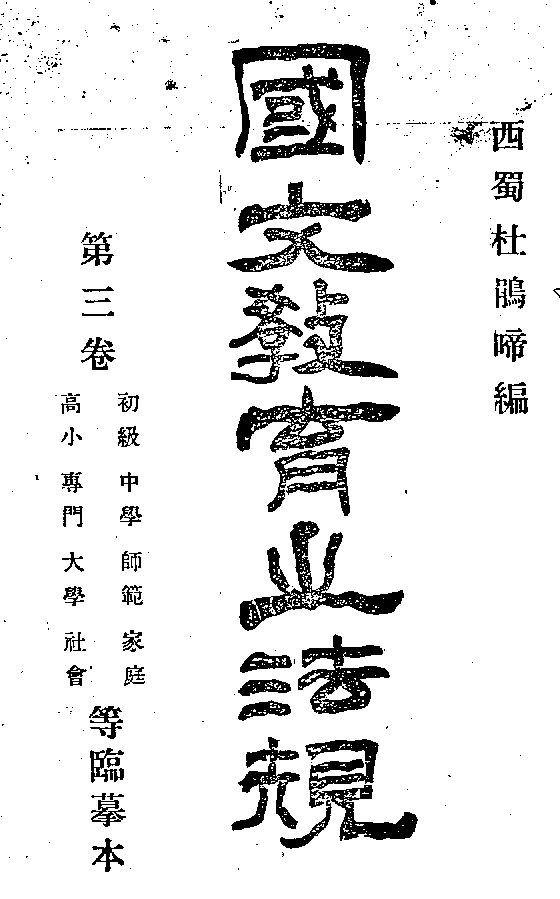 西蜀杜鵑啼編
國文教育之法規
第三卷
初級 中學 師範 家庭
高小 專門 大學 社會
等臨摹本